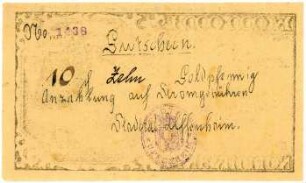 No. 1438
Gutschein.
10 / Zehn Goldpfennig
Anzahlung auf Stromgebühren
Stadtrat Uffenheim.